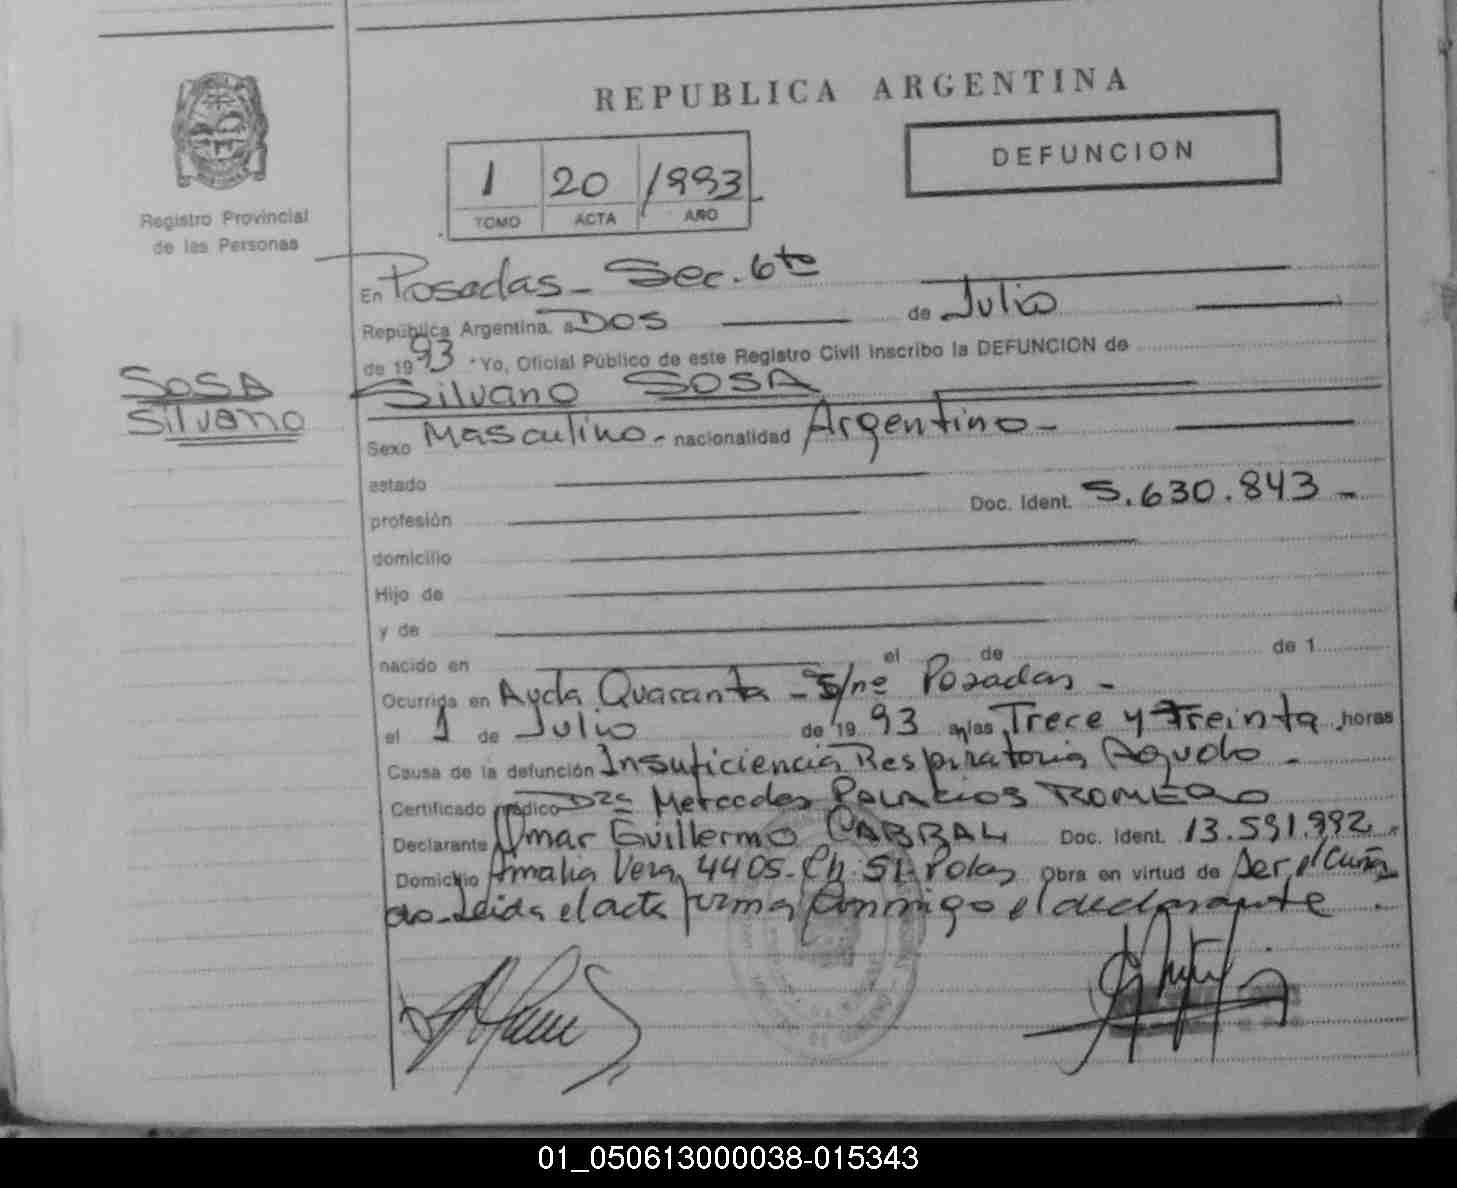 REPUBLICA ARGENTINA
DEFUNCION
1 20 1993
TOMO ACTA AÑO
Registro Provincial
de las Personas
En Posadas - Sec. 6ta
República Argentina, a Dos de Julio
de 1993 Yo, Oficial Público de este Registro Civil inscribo la DEFUNCION de
SOSA
Silvano
Silvano SOSA
Sexo Masculino - nacionalidad Argentino -
estado
profesión Doc. Ident. 5.630.843 -
domicilio
Hijo de
y de
nacido en el de de 1
Ocurrida en Avda Quaranta - S/nº Posadas -
el 1 de Julio de 1993 a las Trece y Treinta horas
Causa de la defunción Insuficiencia Respiratoria Aguda -
Certificado médico Dra Mercedes PALACIOS ROMERO
Declarante Omar Guillermo CABRAL Doc. Ident. 13.591.992
Domicilio Amalia Vera 4405 - Ch. 51. Pdas Obra en virtud de Ser el Cuña
do - Leida el acta firma conmigo el declarante
01_050613000038-015343